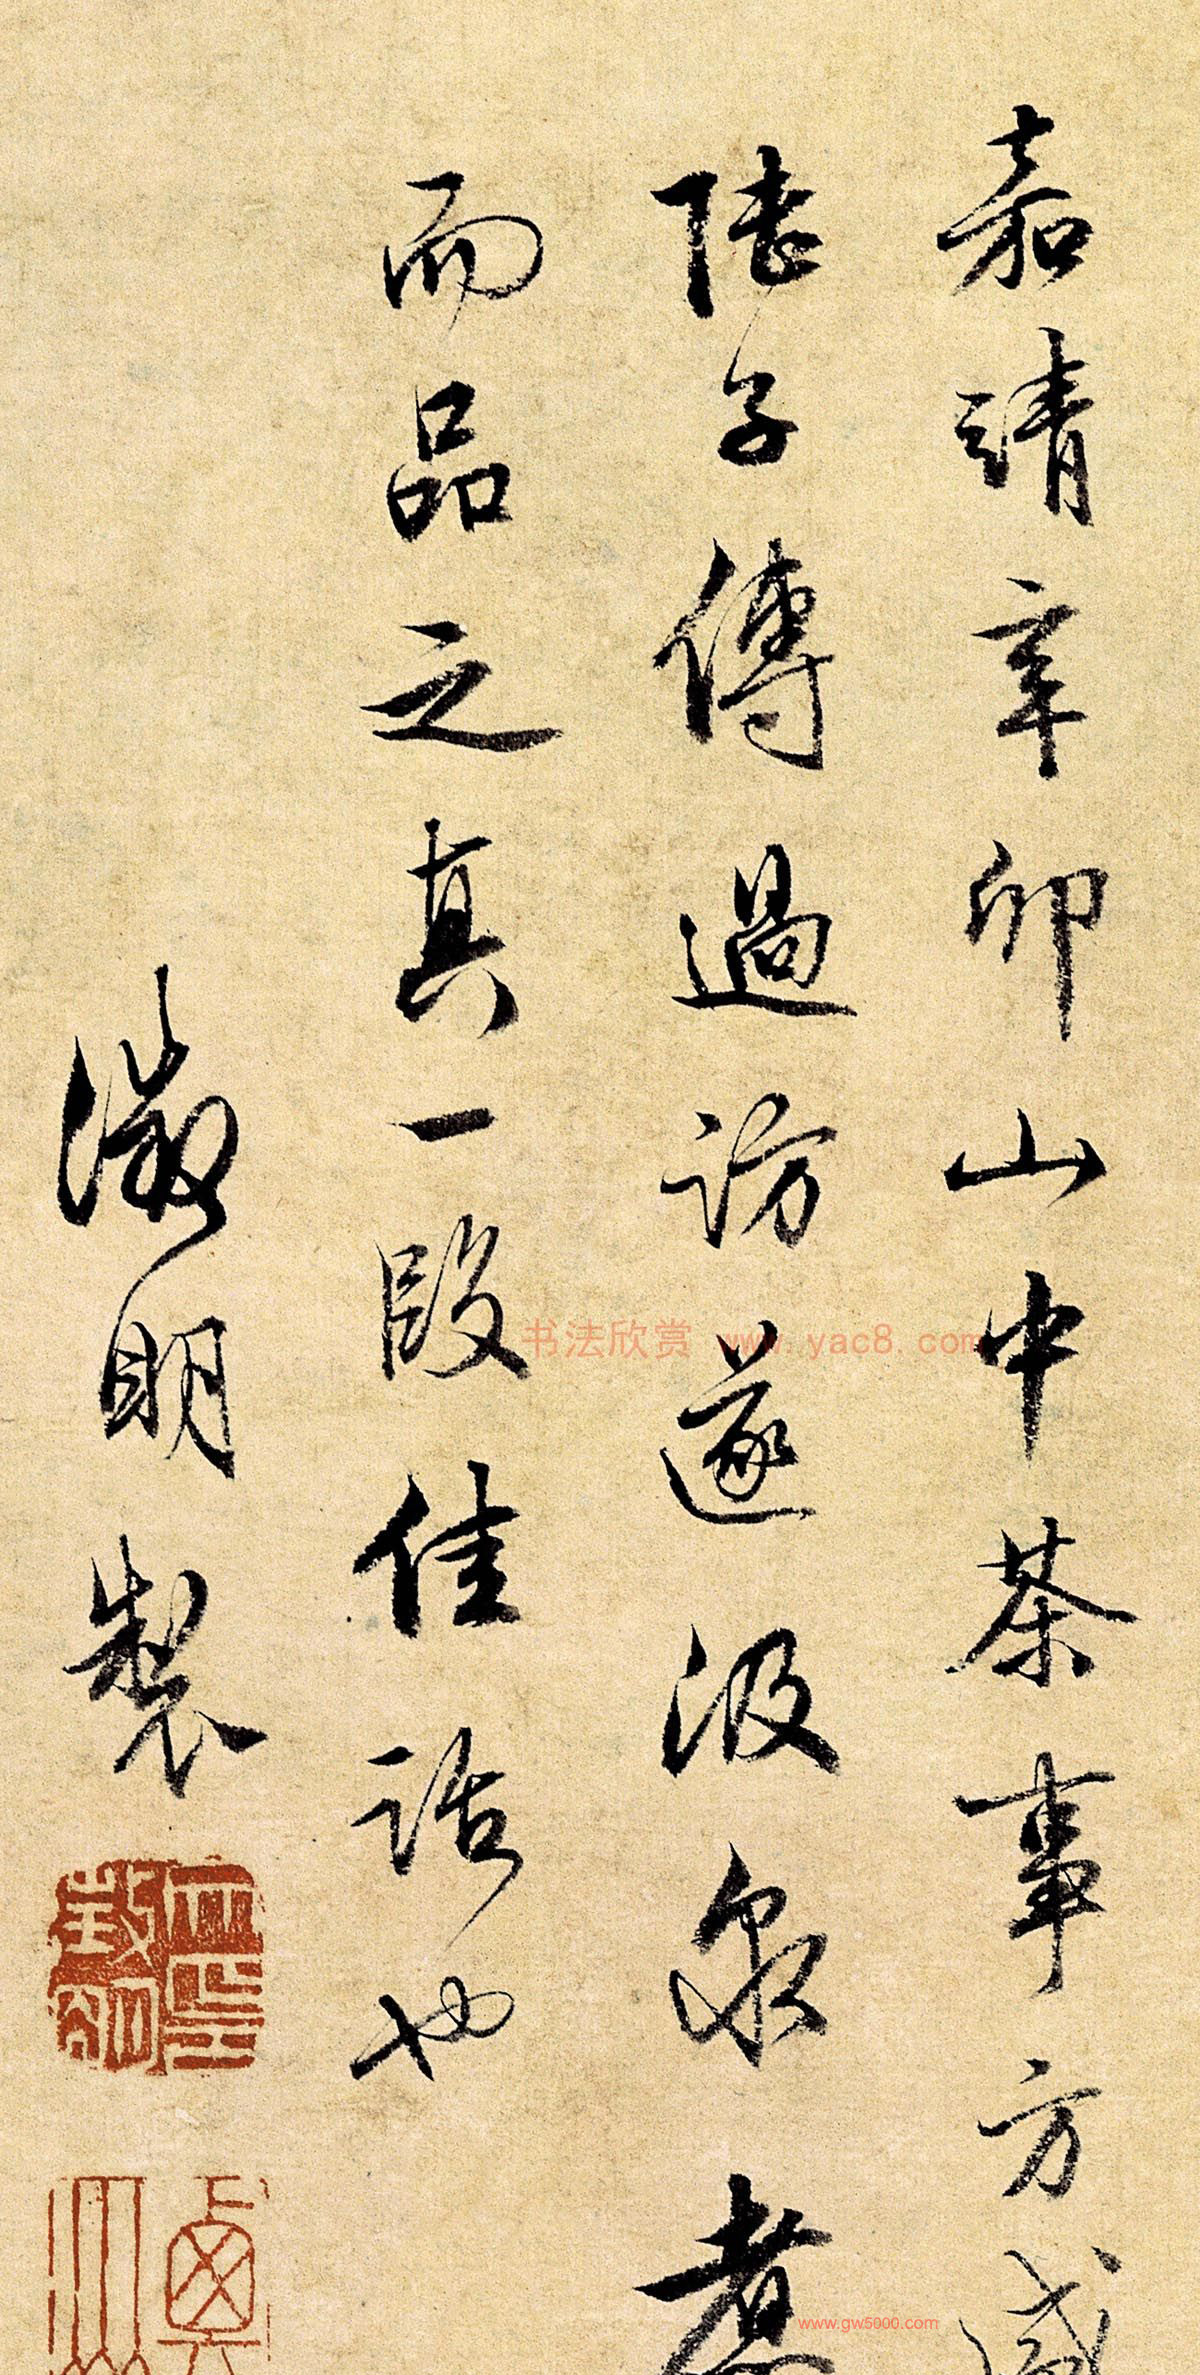 嘉靖辛卯山中茶事方盛
陸子傅過訪遂汲泉煮
而品之真一段佳話也
徵明製
书法欣赏 www.yac8.com
www.gw5000.com